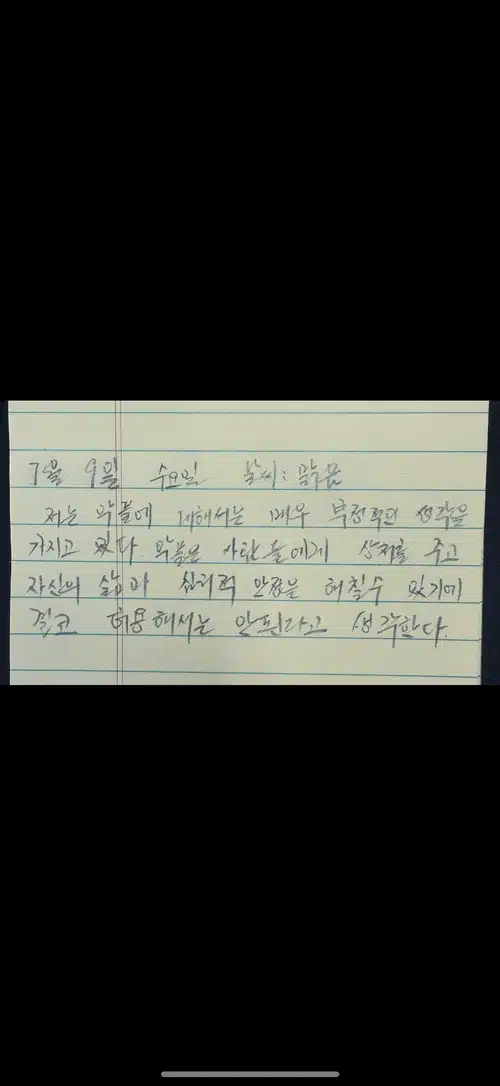 7월 9일 수요일 날씨: 맑음
저는 악플에 대해서는 매우 부정적인 생각을
가지고 있다. 악플은 사람들에게 상처를 주고
자신의 삶과 심리적 안정을 해칠수 있기에
결코 허용해서는 안된다라고 생각한다.